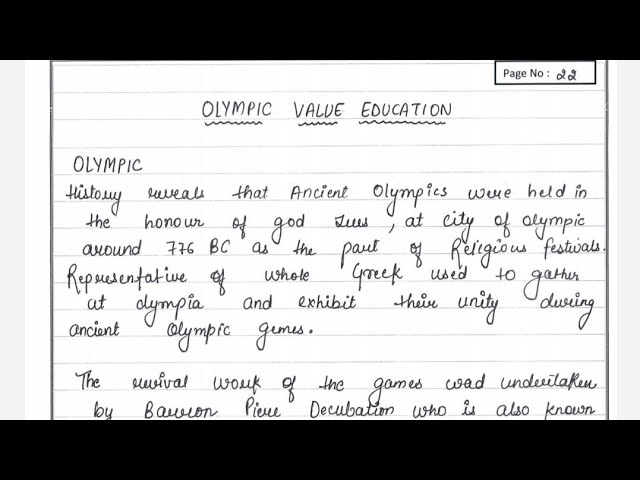 Page No : 22
OLYMPIC VALUE EDUCATION
OLYMPIC
History reveals that Ancient Olympics were held in
the honour of god zues, at city of olympic
around 776 BC as the part of Religious festivals.
Representative of whole Greek used to gather
at olympia and exhibit their unity during
ancient Olympic gemes.
The revival work of the games wad undertaken
by Barron Piere Decubation who is also known